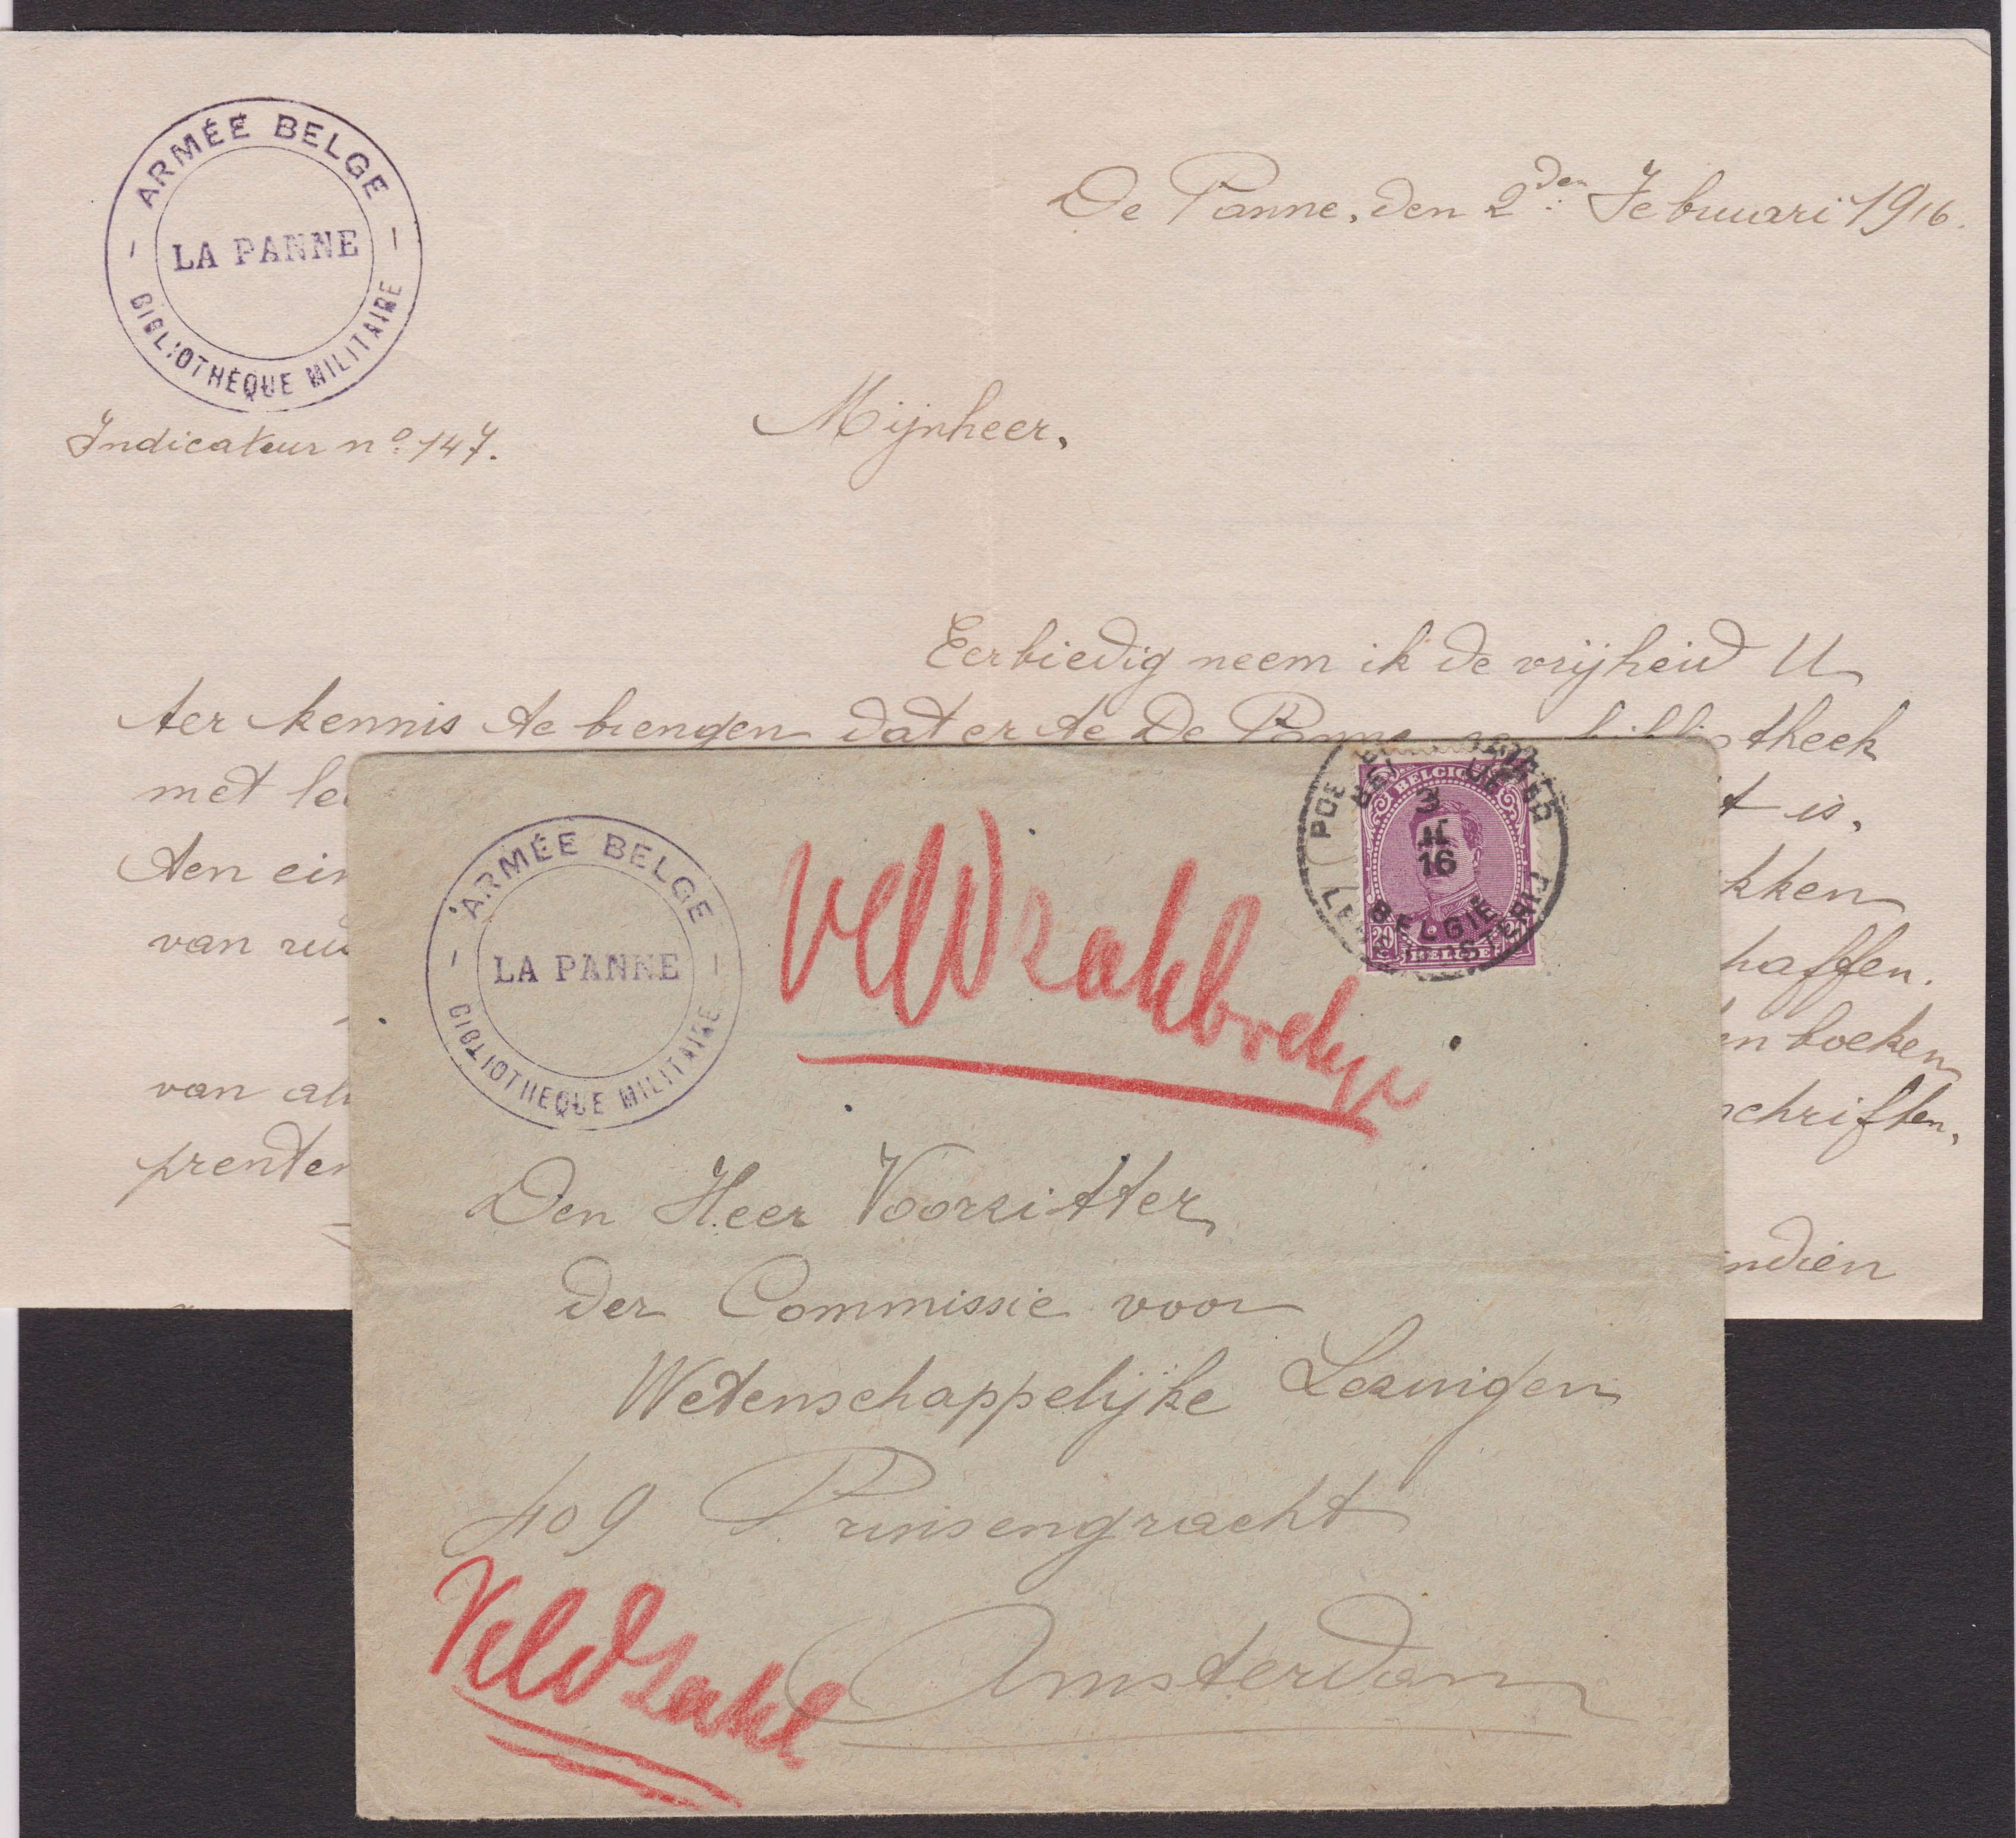 ARMÉE BELGE
LA PANNE
BIBLIOTHÈQUE MILITAIRE
De Panne, den 2den Februari 1916.
Indicateur no. 147.
Mijnheer,
Eerbiedig neem ik de vrijheid U
ter kennis te brengen dat er te De Panne bibliotheek
met t is.
Aen kken
van haffen.
n boeken
van schriften,
prenten
ndien
ARMÉE BELGE
LA PANNE
BIBLIOTHEQUE MILITAIRE
Veldzakboekje
BELGIQUE
3
II
16
BELGIË
LEGERPOSTERIJ
20
Den Heer Voorzitter
der Commissie voor
Wetenschappelijke Lezingen
409 Prinsengracht
Amsterdam
Veldzakb